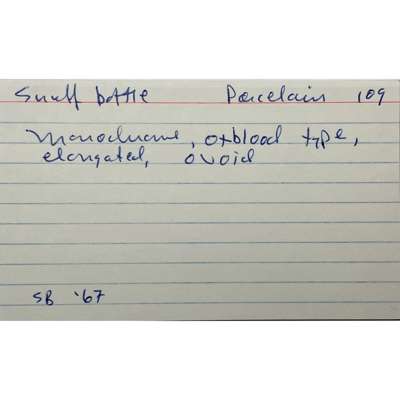 Snuff bottle Porcelain 109
Monochrome, oxblood type,
elongated, ovoid
SB '67